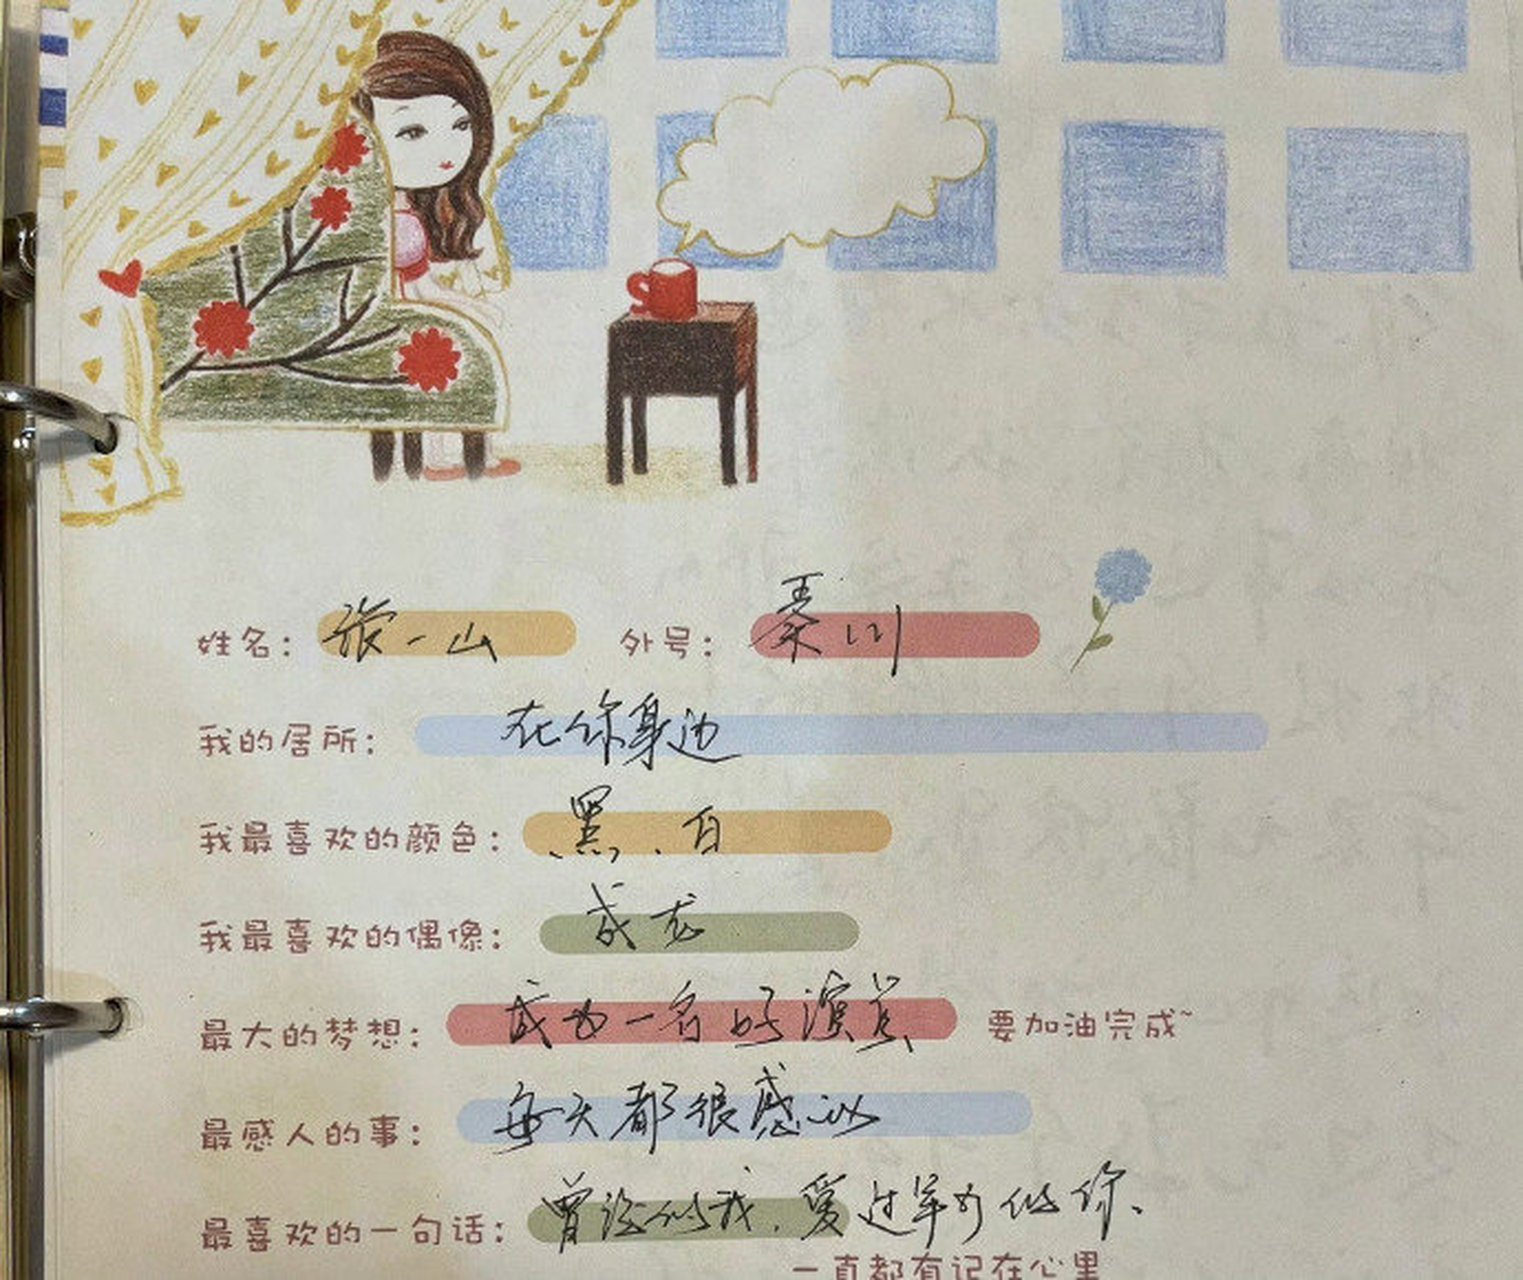 姓名：张一山 外号：秦川
我的居所：在你身边
我最喜欢的颜色：黑、白
我最喜欢的偶像：成龙
最大的梦想：成为一名好演员 要加油完成~
最感人的事：每天都很感动
最喜欢的一句话：曾经的我，爱过年少的你、
一直都有记在心里